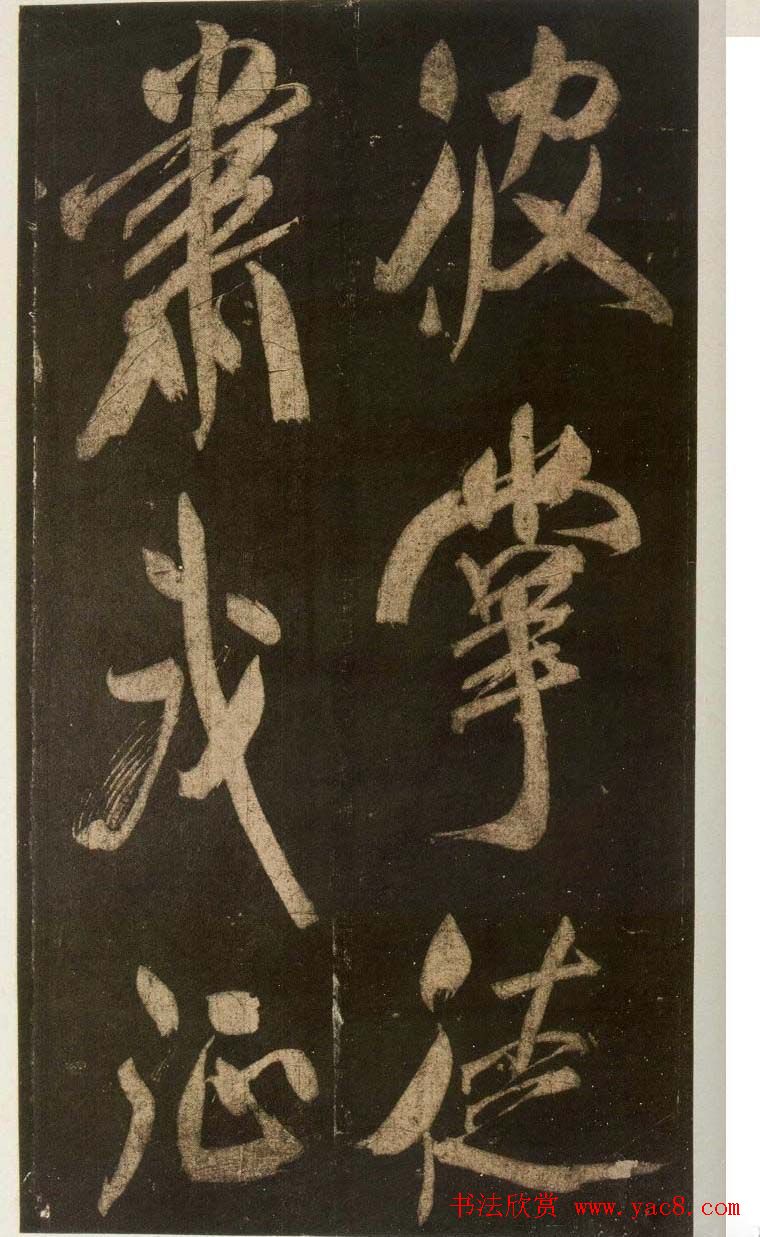 彼掌徒
肅我
书法欣赏 www.yac8.com